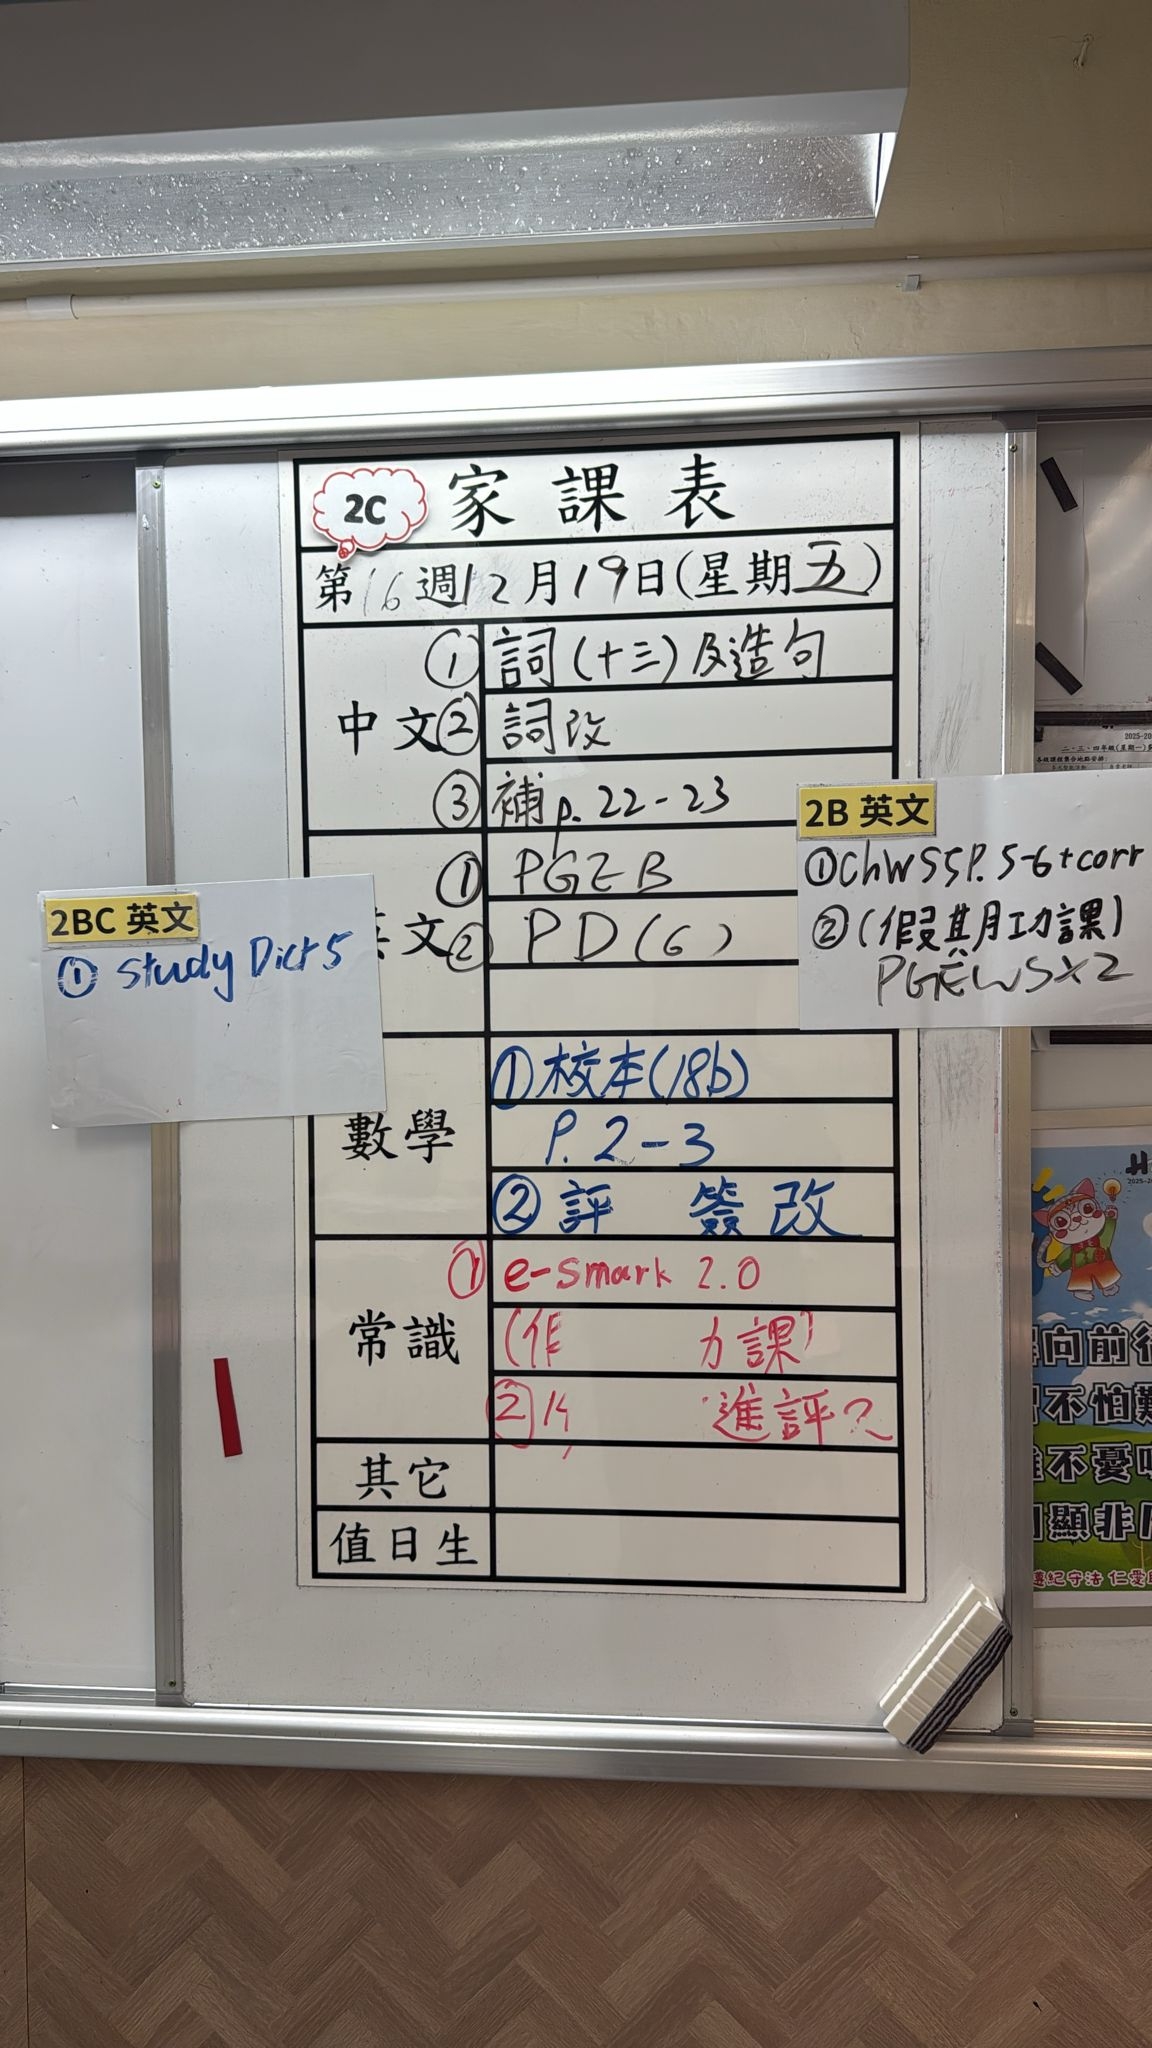 2C 家課表
第16週12月19日(星期五)
中文
① 詞(十三)及造句
② 詞改
③ 補p.22-23
英文
① PGEB
② PD(6)
2BC 英文
① Study Dict 5
2B 英文
①ChWS5P.5-6+corr
②(假期功課)
PGEWSX2
數學
①校本(18b)
P.2-3
②評 簽改
常識
① e-smark 2.0
(作 課)
② 進評2
其它
值日生
2025-20
二、三、四年級(星期一)
各級課程集合地點安排:
向前
不怕難
不憂
顯非凡
遵紀守法 仁愛